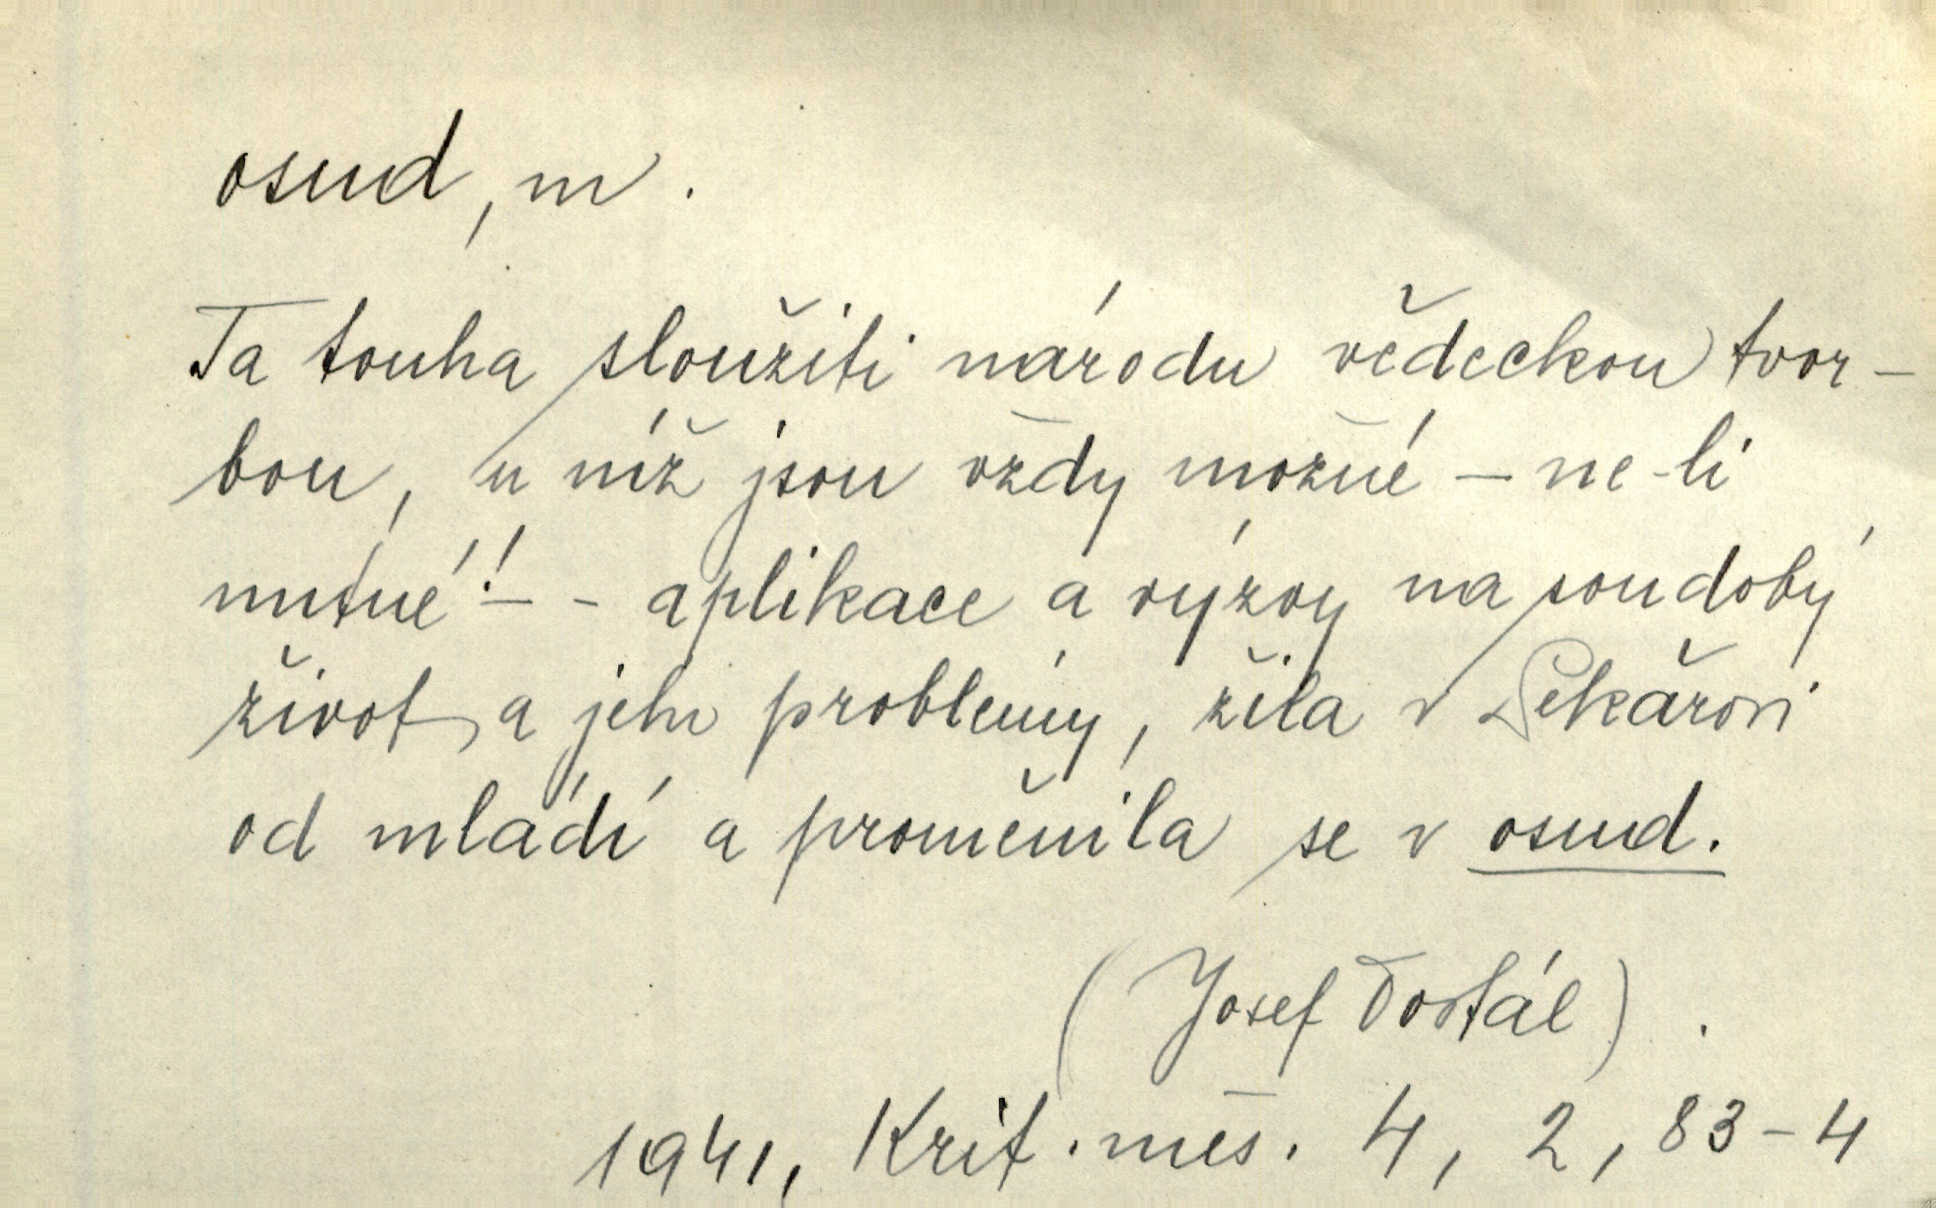 osud, m.
Ta touha sloužiti národu vědeckou tvor-
bou, u níž jsou vždy možné – ne-li
nutné! – - aplikace a výzvy na soudobý
život a jeho problémy, žila v Pekařovi
od mládí a proměnila se v osud.
(Josef Dostál).
1941, Krit. měs. 4, 2, 83-4